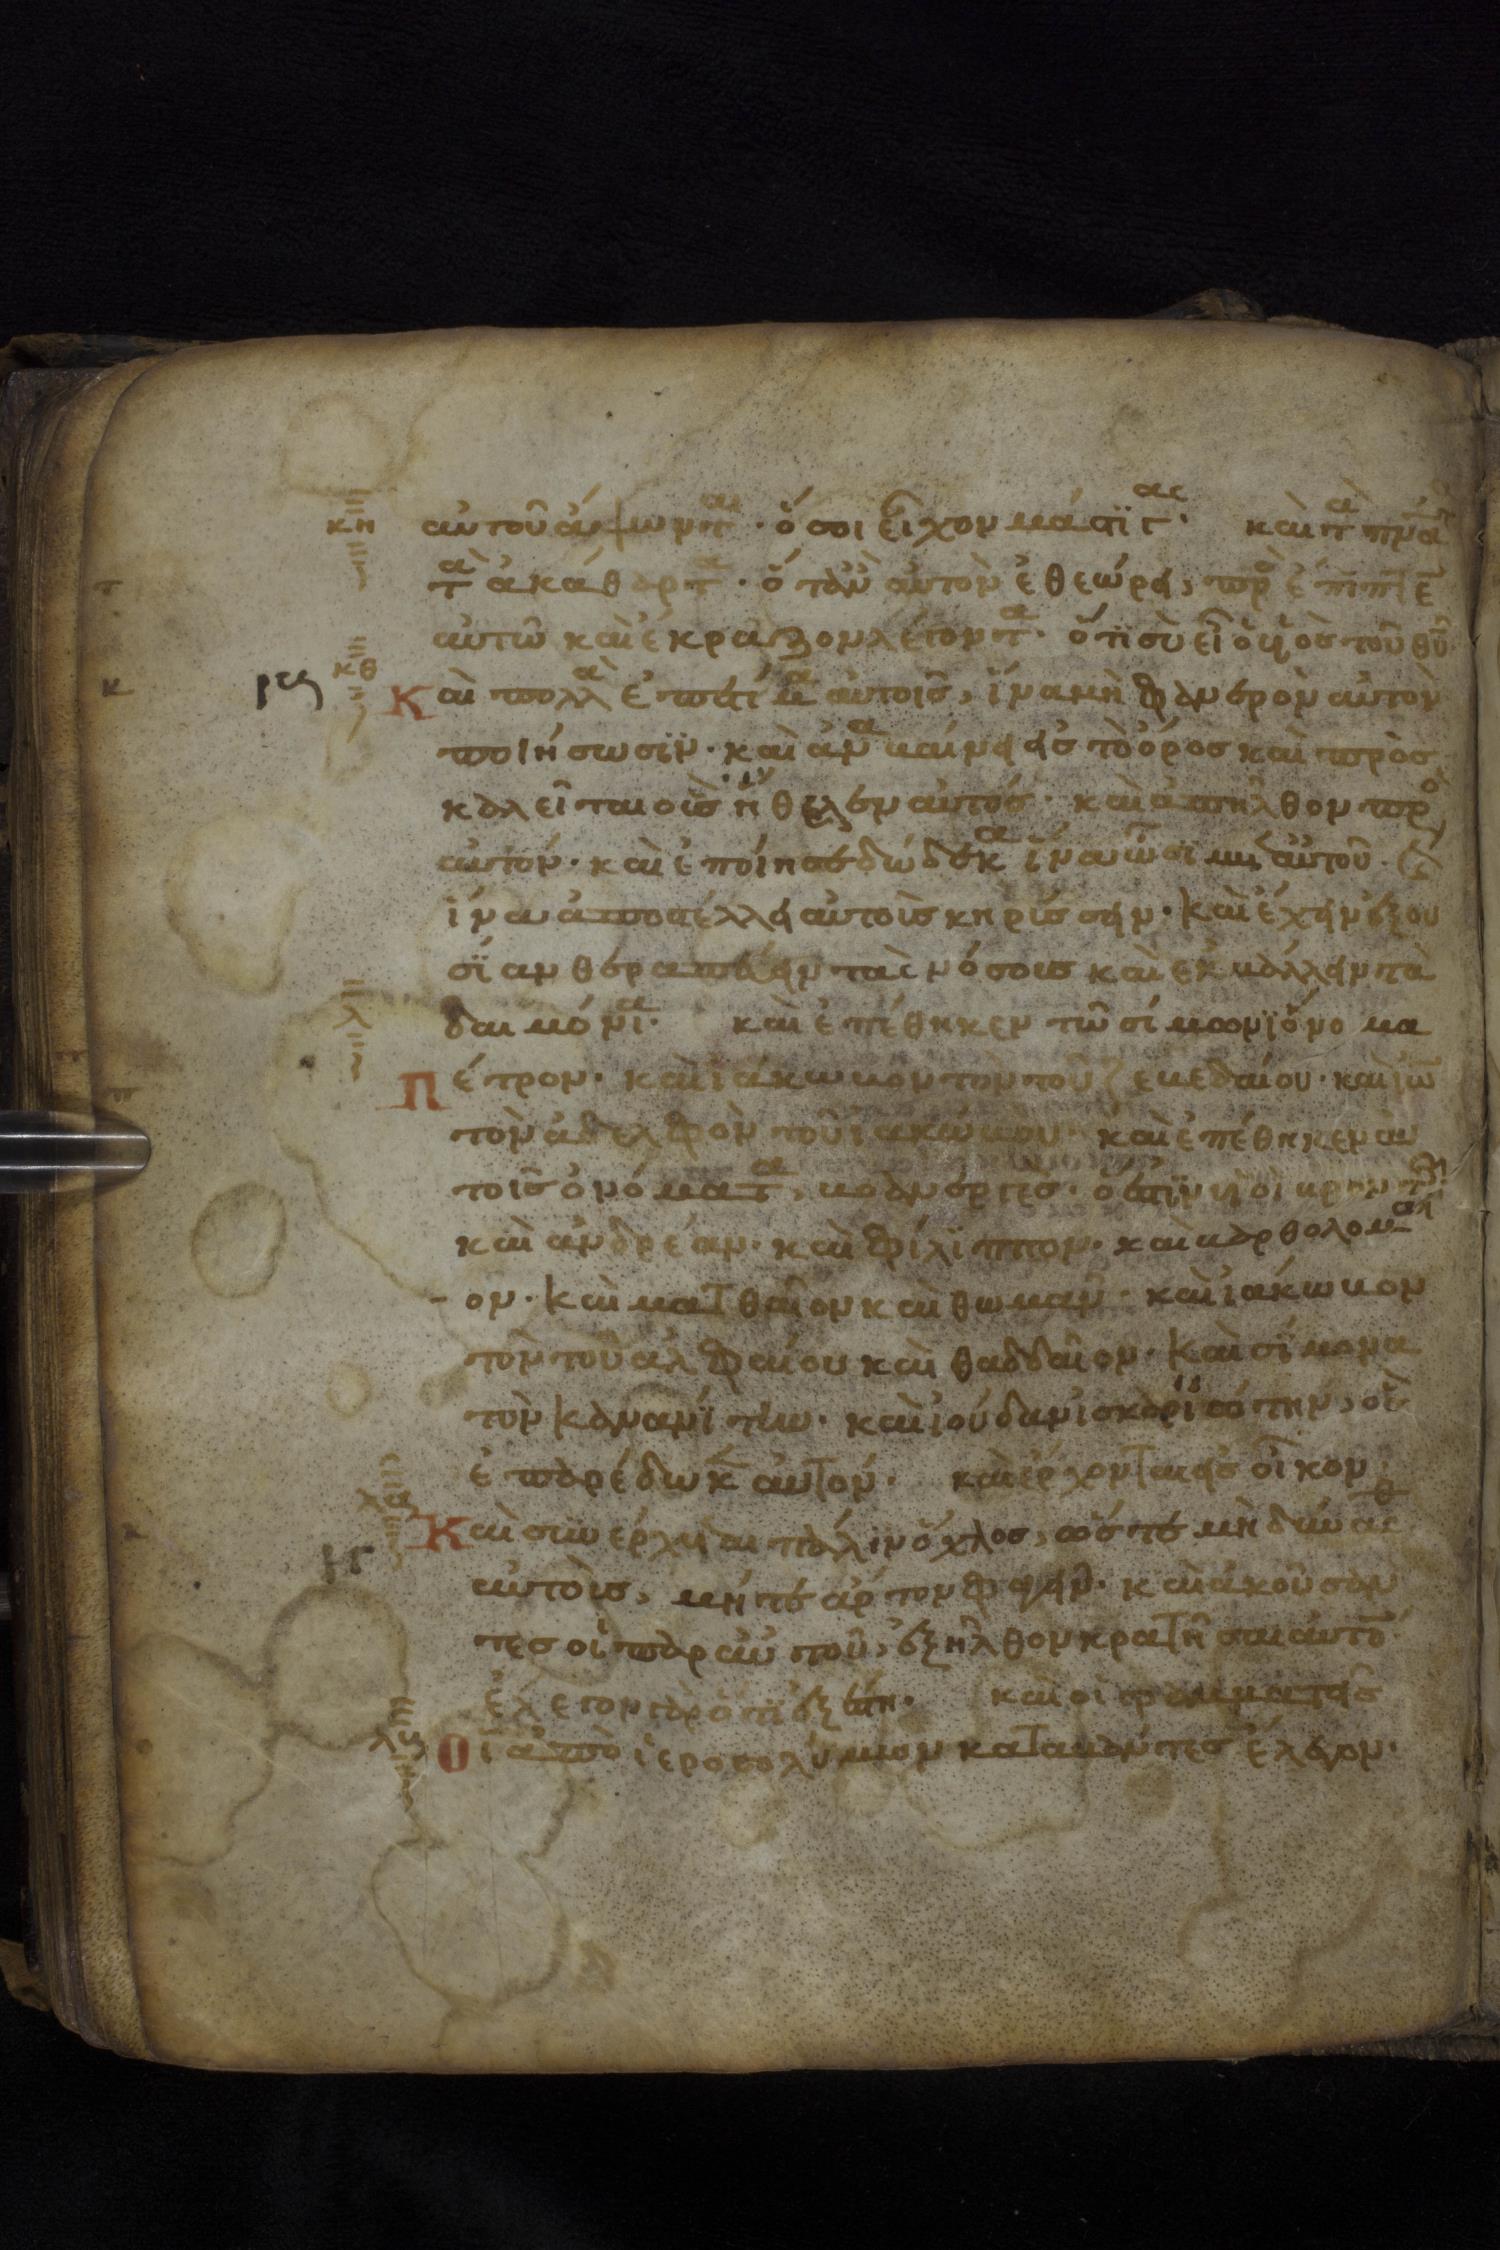 κη αὐτοῦ ἅψωντ αι · ὅσοι εἶχον μάστιγας · καὶ τὰ πνα
τὰ ἀκάθαρτα · ὅταν αὐτὸν ἐθεώρει, προσέπιπτε
αὐτῶ καὶ ἐκραζον λέγοντα · ὅτι σὺ εἶ ὁ υἱὸς τοῦ θυ
κθ Και πολλὰ ἐπετίμα αὐτοῖς, ἵνα μὴ φανερὸν αὐτὸν
ποιήσωσιν · καὶ ἀναβαίνει εἰς τὸ ὄρος καὶ πρὸς
καλεῖται οὓς ἤθελεν αὐτός · καὶ ἀπῆλθον πρὸ
αὐτόν · καὶ ἐποίησε δώδεκα ἵνα ὦσι μετ αὐτοῦ · καὶ
ἵνα ἀποστέλλη αὐτοὺς κηρίσσειν · καὶ ἔχειν ἐξου
σίαν θεραπεύειν τὰς νόσους καὶ ἐκβάλλειν τὰ
λ δαιμόνια · καὶ ἐπέθηκεν τῶ σίμωνι ὄνομα
Πέτρον · καὶ ἰάκωβον τὸν τοῦ ζεβεδαίου · καὶ ἰω
τὸν ἀδελφὸν τοῦ ἰακώβου · καὶ ἐπέθηκεν αυ
τοῖς ὀνόματα, βοανεργες · ὅ ἐστιν υἱοὶ βροντῆ
καὶ ἀνδρέαν · καὶ φίλιππον · καὶ βαρθολομαῖ
ον · Καὶ ματθαῖον καὶ θωμαν · καὶ ἰάκωβον
τὸν τοῦ αλφαίου καὶ θαδδαῖον · Καὶ σίμονα
τὸν Κανανίτην · καὶ ἰούδαν ἰσκαριώτην, ὃς
παρέδωκεν αὐτόν · καὶ ἔρχονται εἰς οἶκον ·
λα Και συνέρχεται πάλιν ὄχλος, ὥστε μὴ δύνασθ
αὐτοὺς, μήτε ἄρτον φαγεῖν · καὶ ἀκούσαν
τες οἱ παρ αὐτοῦ, ἐξῆλθον κρατῆσαι αὐτο
ἔλεγον γὰρ ὅτι ἐξέστη · καὶ οἱ γραμματεῖς
λβ Οἱ ἀπὸ ἱεροσολύμων καταβάντες ἔλεγον ·